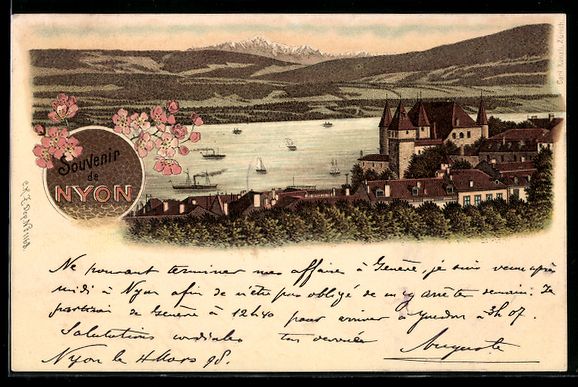 Souvenir
de
NYON
Ne pouvant terminer mes affaire à Genève je suis venu après
midi à Nyon afin de n'être pas obligé de m'y arrêter demain. Je
partirai de Genève à 12h40 pour arriver à Yverdon à 3h 07.
Salutations cordiales ton dévoué
Auguste
Nyon le 4 Mars 98.